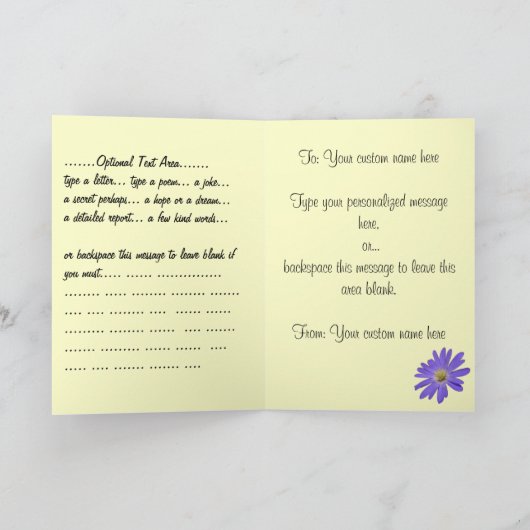 .......Optional Text Area.......
type a letter... type a poem... a joke...
a secret perhaps... a hope or a dream...
a detailed report... a few kind words...
or backspace this message to leave blank if
you must..... ...... ...............
....... .... ..... ...... ......
.......... .... .... .... ....
...... ....... ..... .... ....
....... ..... ...... .... ....
.... ....... ..... .... ....
To: Your custom name here
Type your personalized message
here,
or...
backspace this message to leave this
area blank.
From: Your custom name here